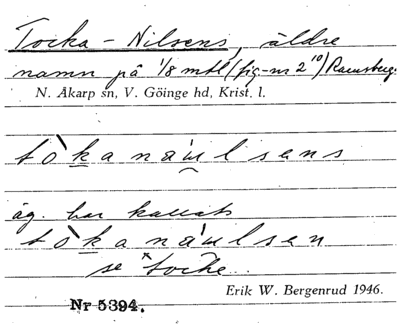 Tocka-Nilsens, äldre
namn på 1/8 mtl (fig-nr 2¹⁰) Ramsberg.
N. Åkarp sn, V. Göinge hd, Krist. l.
tò`kanaúlsens
äg. har kallats
tò`kanaúlsen
se Tocke.
Erik W. Bergenrud 1946.
Nr 5394.